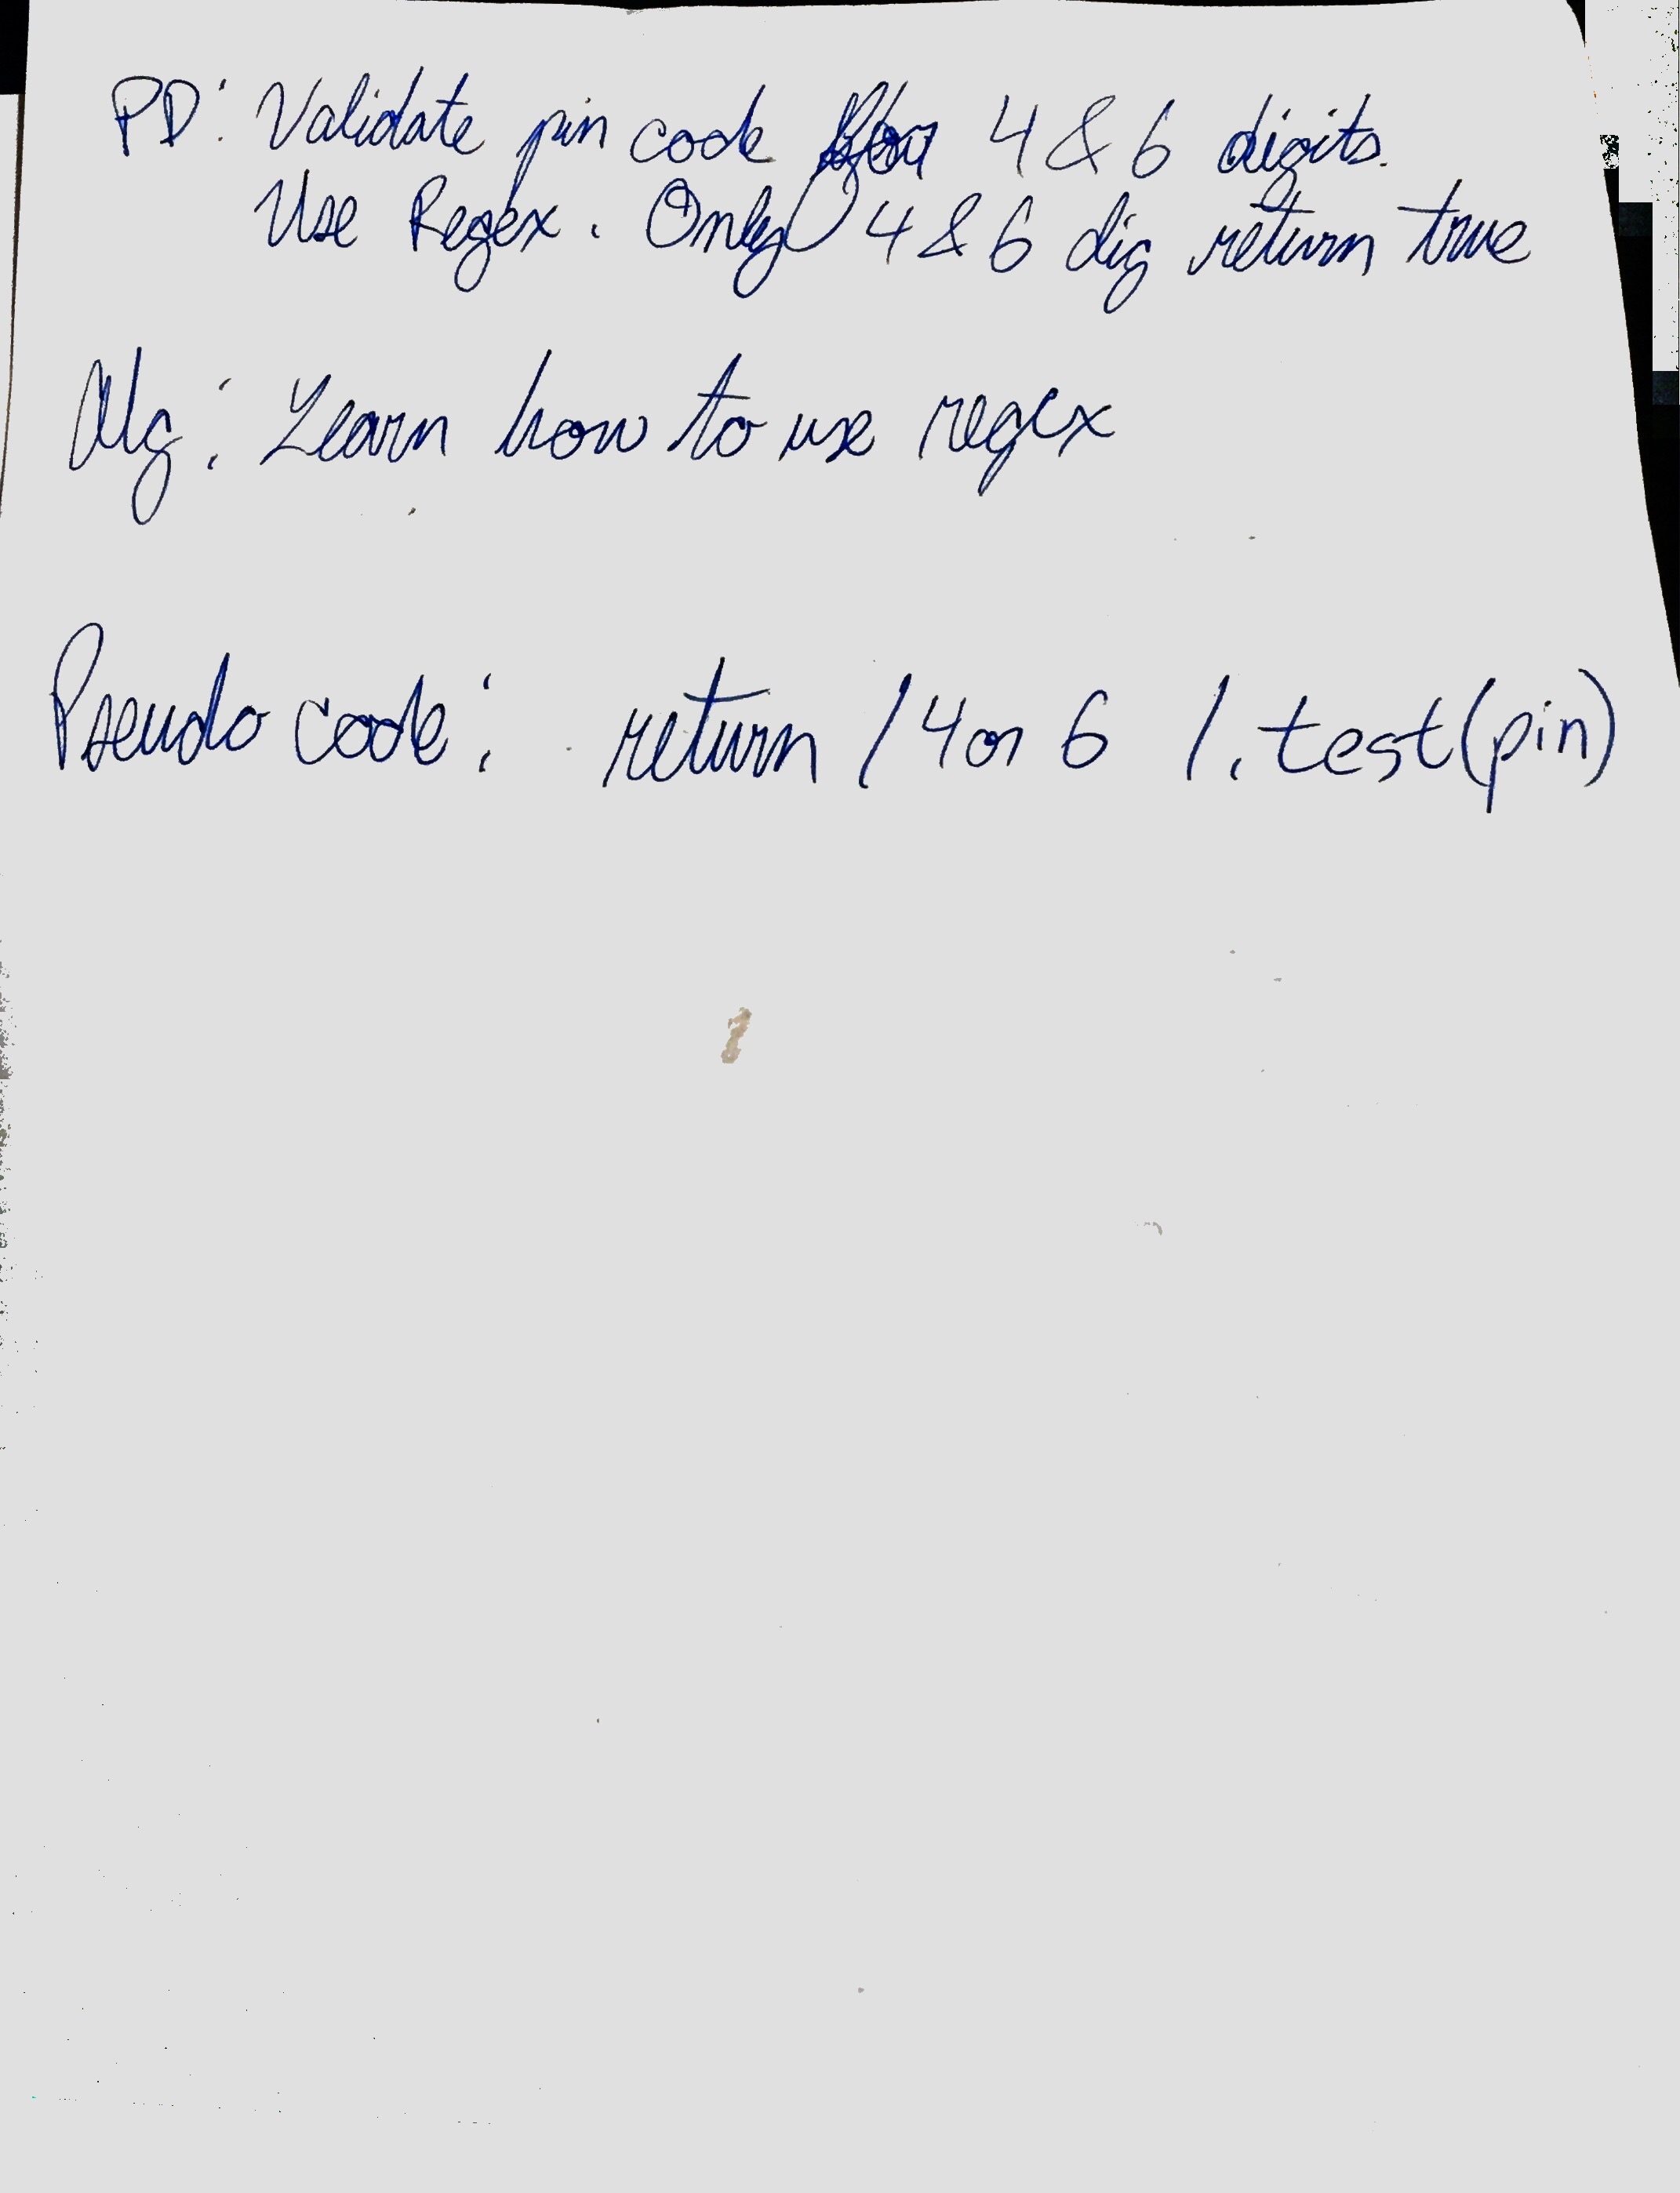 PD: Validate pin code for 4 & 6 digits.
Use Regex. Only 4 & 6 dig return true
Alg: Learn how to use regex
Pseudo code: return / 4 or 6 /.test(pin)